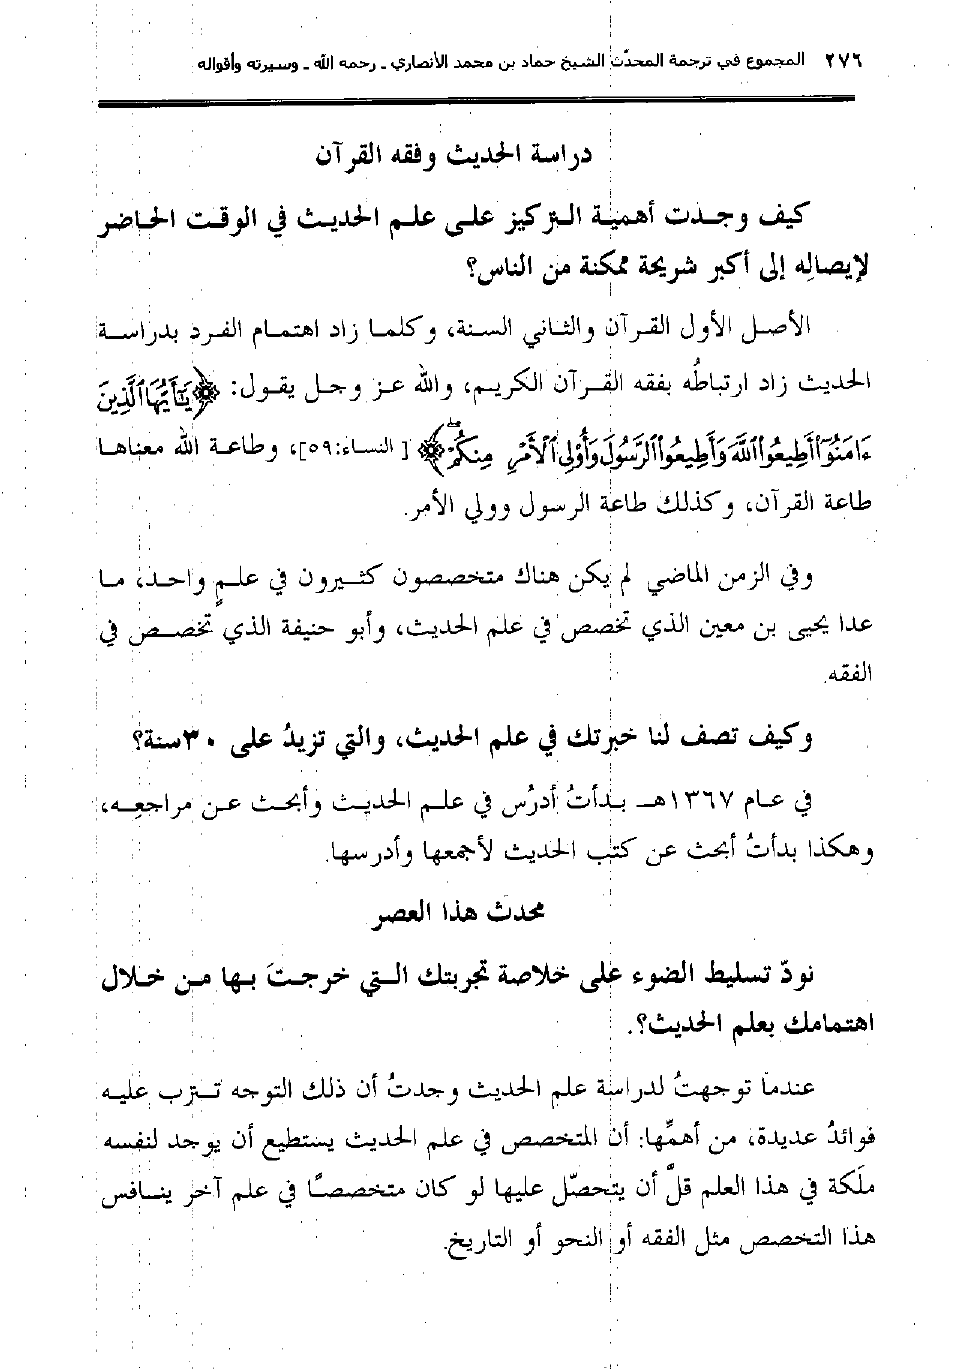 ٢٧٦ المجموع في ترجمة المحدّث الشيخ حماد بن محمد الأنصاري ـ رحمه الله ـ وسيرته وأقواله
دراسة الحديث وفقه القرآن
كيف وجدت أهمية التركيز على علم الحديث في الوقت الحاضر
لإيصاله إلى أكبر شريحة ممكنة من الناس؟
الأصل الأول القرآن والثاني السنة، وكلما زاد اهتمام الفرد بدراسة
الحديث زاد ارتباطُه بفقه القرآن الكريم، والله عز وجل يقول: ﴿يَٰٓأَيُّهَا ٱلَّذِينَ
ءَامَنُوٓاْ أَطِيعُواْ ٱللَّهَ وَأَطِيعُواْ ٱلرَّسُولَ وَأُوْلِي ٱلۡأَمۡرِ مِنكُمۡۖ﴾ [النساء:٥٩]، وطاعة الله معناها
طاعة القرآن، وكذلك طاعة الرسول وولي الأمر.
وفي الزمن الماضي لم يكن هناك متخصصون كثيرون في علمٍ واحد، ما
عدا يحيى بن معين الذي تخصص في علم الحديث، وأبو حنيفة الذي تخصص في
الفقه.
وكيف تصف لنا خبرتك في علم الحديث، والتي تزيدُ على ٣٠سنة؟
في عام ١٣٦٧هـ بدأتُ أدرُس في علم الحديث وأبحث عن مراجعِه،
وهكذا بدأتُ أبحث عن كتب الحديث لأجمعها وأدرسها.
محدث هذا العصر
نودّ تسليط الضوء على خلاصة تجربتك التي خرجتَ بها من خلال
اهتمامك بعلم الحديث؟.
عندما توجهتُ لدراسة علم الحديث وجدتُ أن ذلك التوجه تترب عليه
فوائدُ عديدة، من أهمِّها: أن المتخصص في علم الحديث يستطيع أن يوجد لنفسه
ملَكة في هذا العلم قلَّ أن يتحصّل عليها لو كان متخصصًا في علم آخر ينافس
هذا التخصص مثل الفقه أو النحو أو التاريخ.